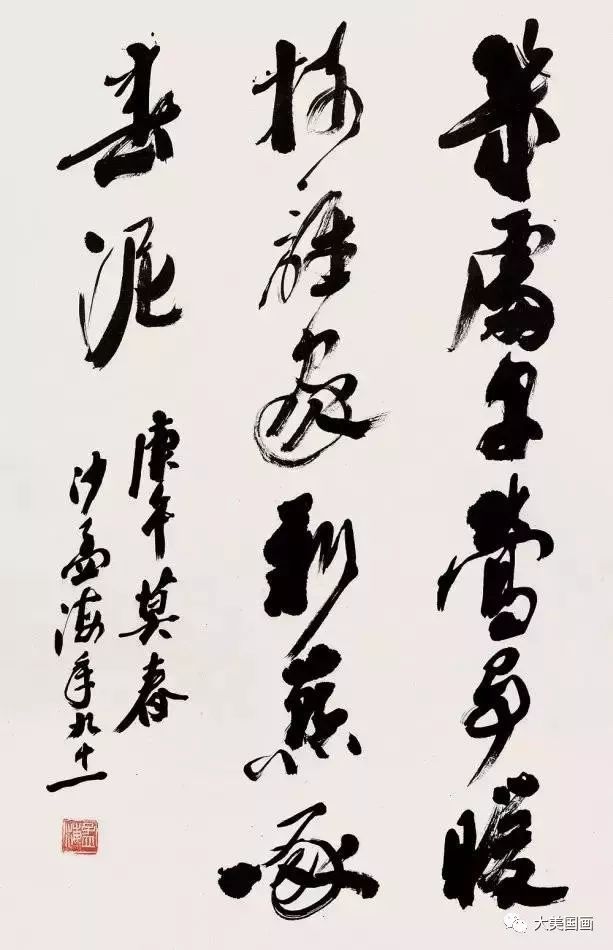 幾處早鶯爭暖
樹誰家新燕啄
春泥
庚午莫春
沙孟海年九十一
孟海
大美国画